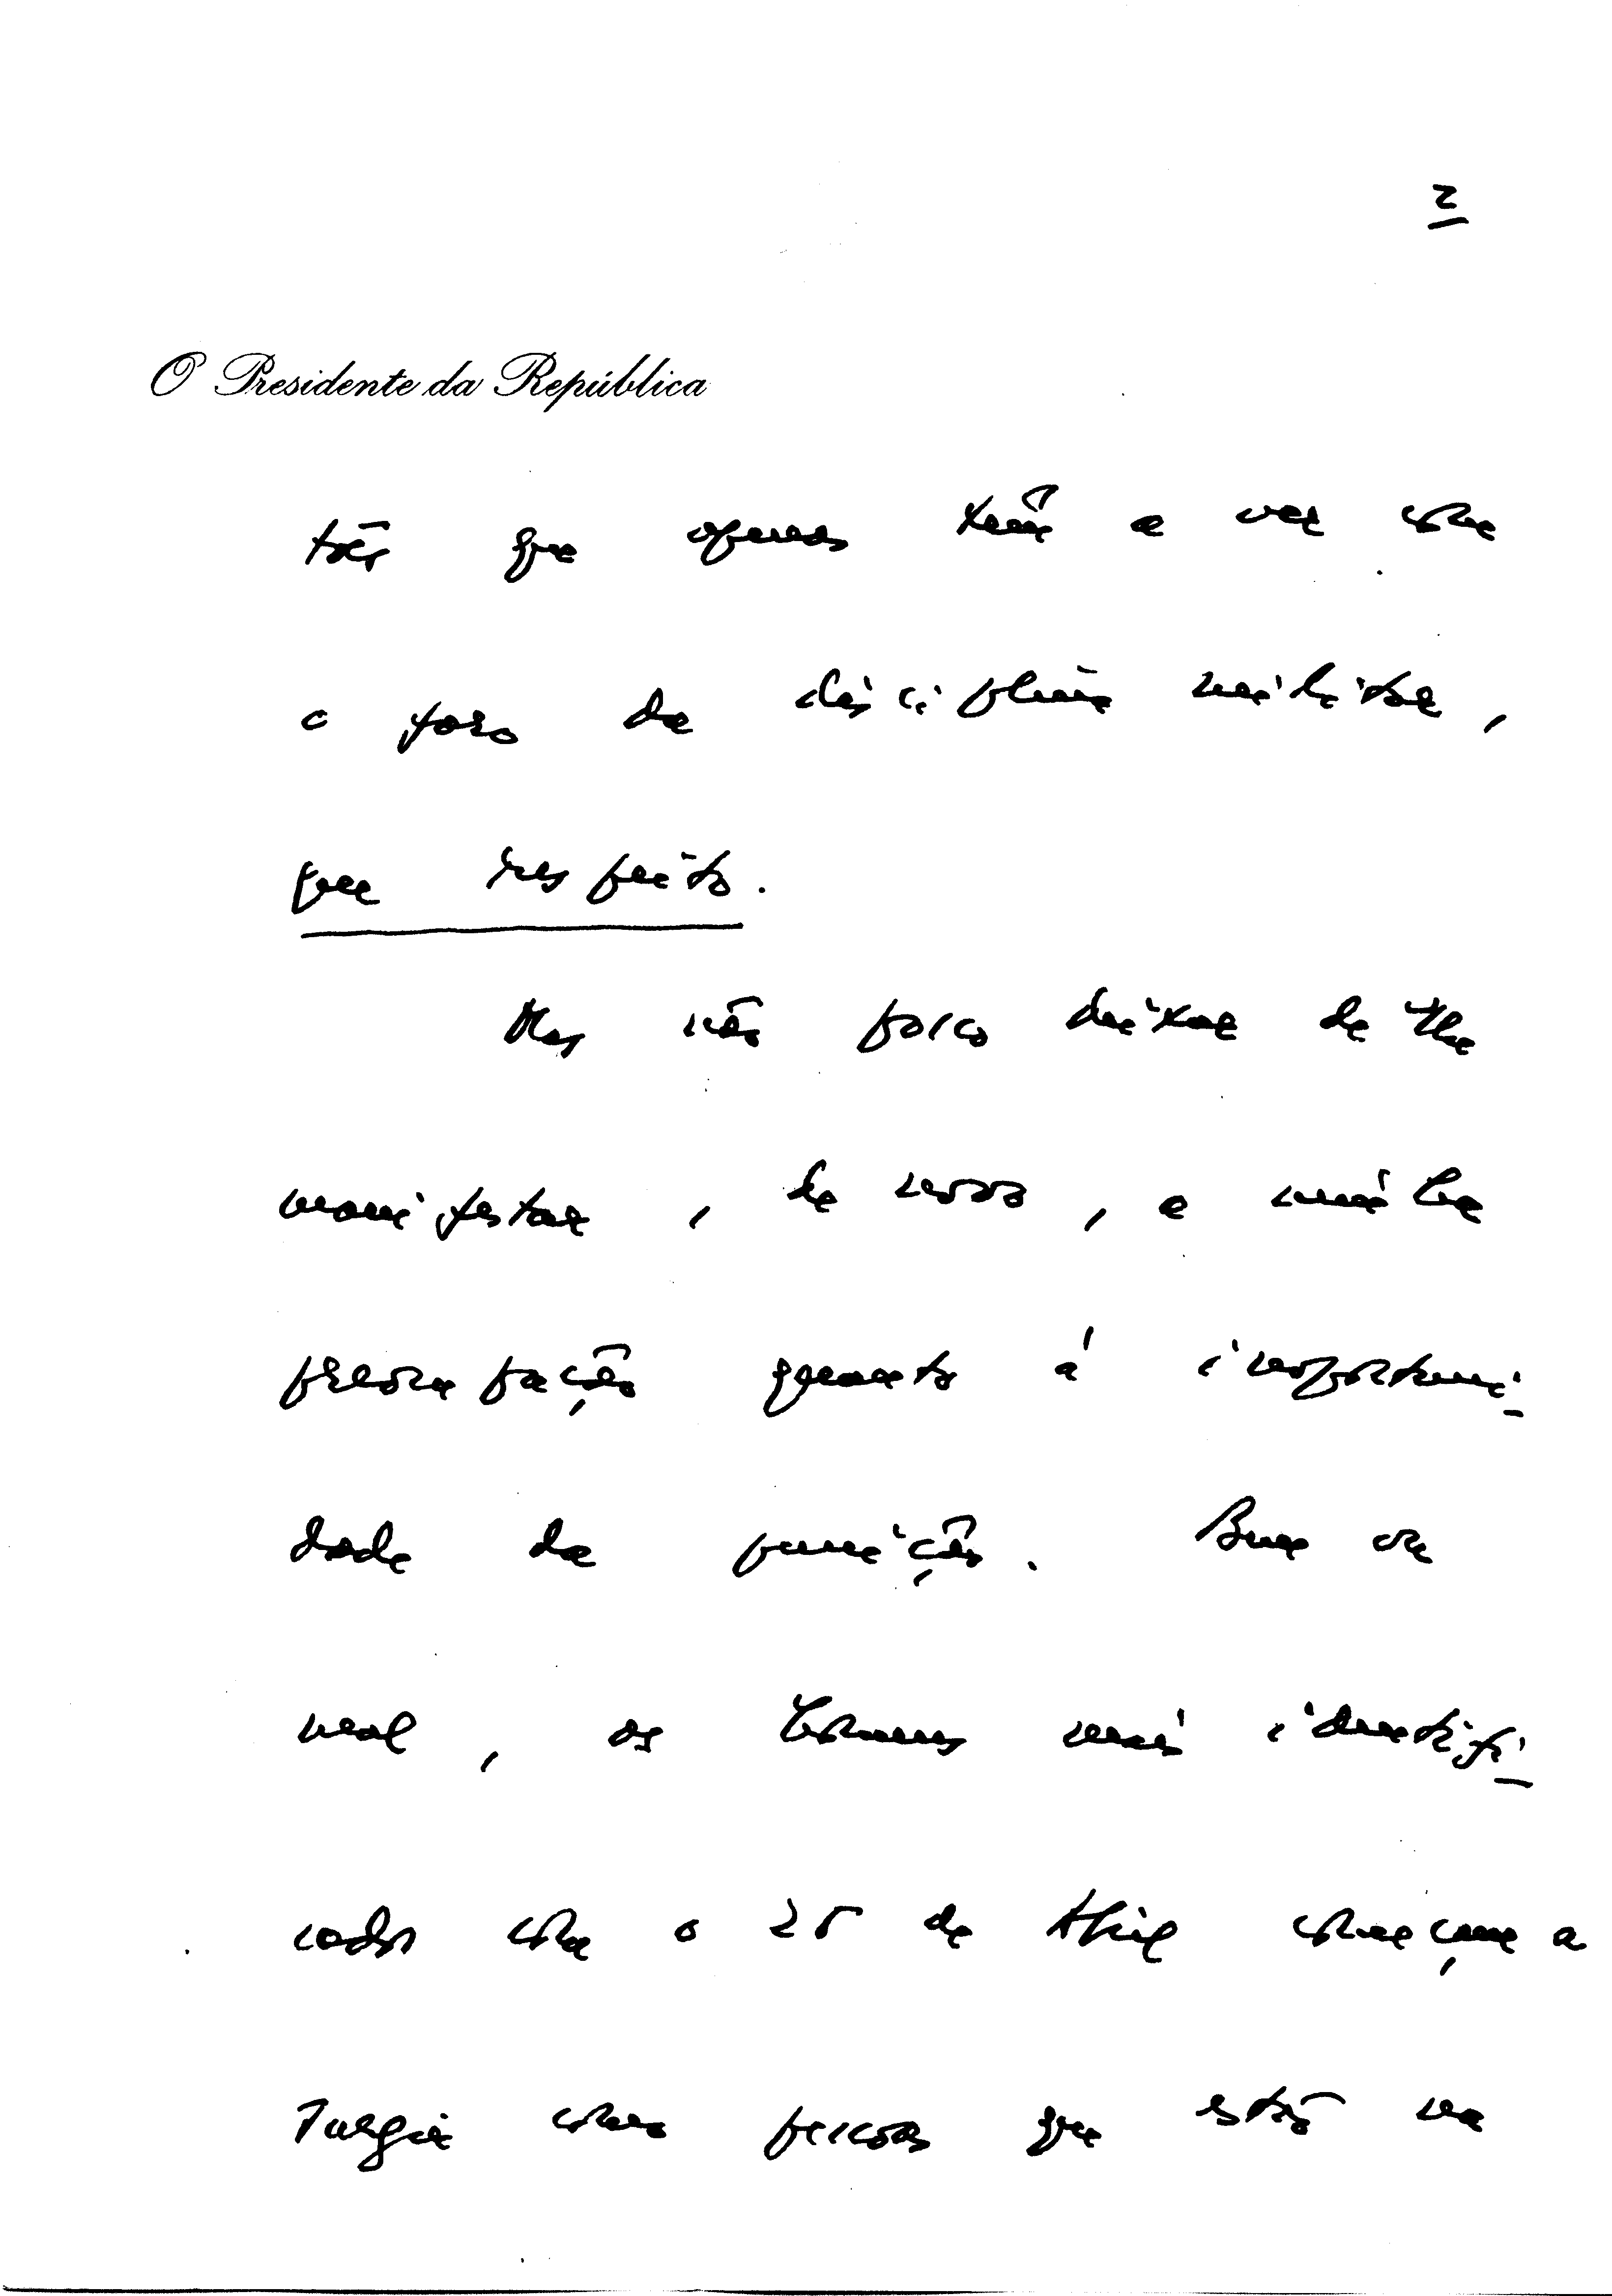 2
O Presidente da República
tões que apenas têm a ver com
o foro da disciplina militar,
que respeito.
Mas não posso deixar de lhe
manifestar, de novo, a minha
preocupação quanto à inoportuni-
dade da punição. Bem ou
mal, os homens mais identifi-
cados com o 25 de Abril começam a
surgir como pessoas que estão na